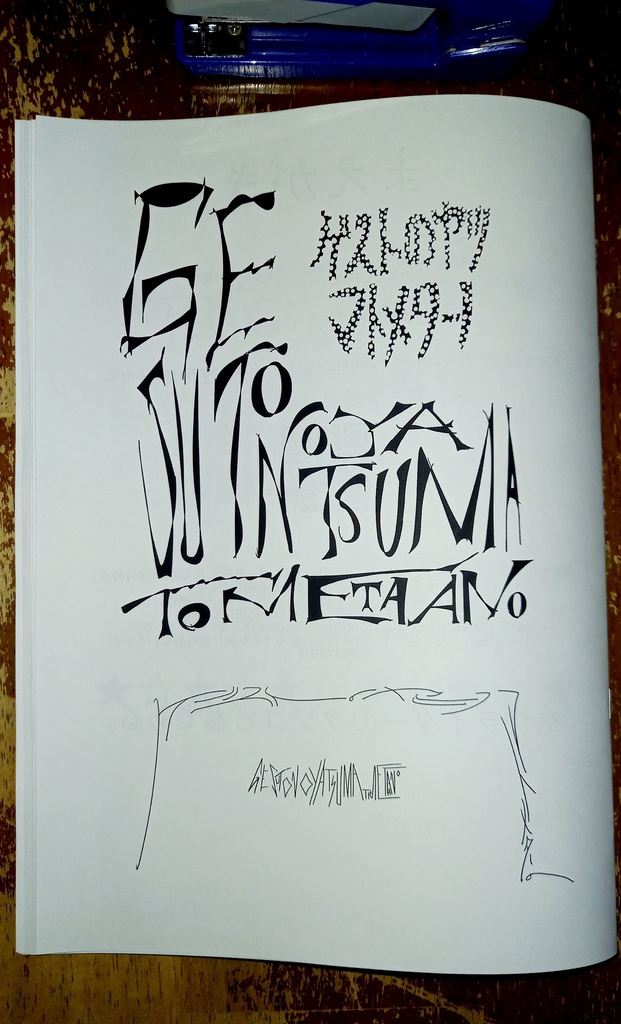 GE
ゲストのヤツ
マトメター
SUTO
NOYA
TSUMA
TOMETAANO
GESUTONOYATSUMATOMETAANO